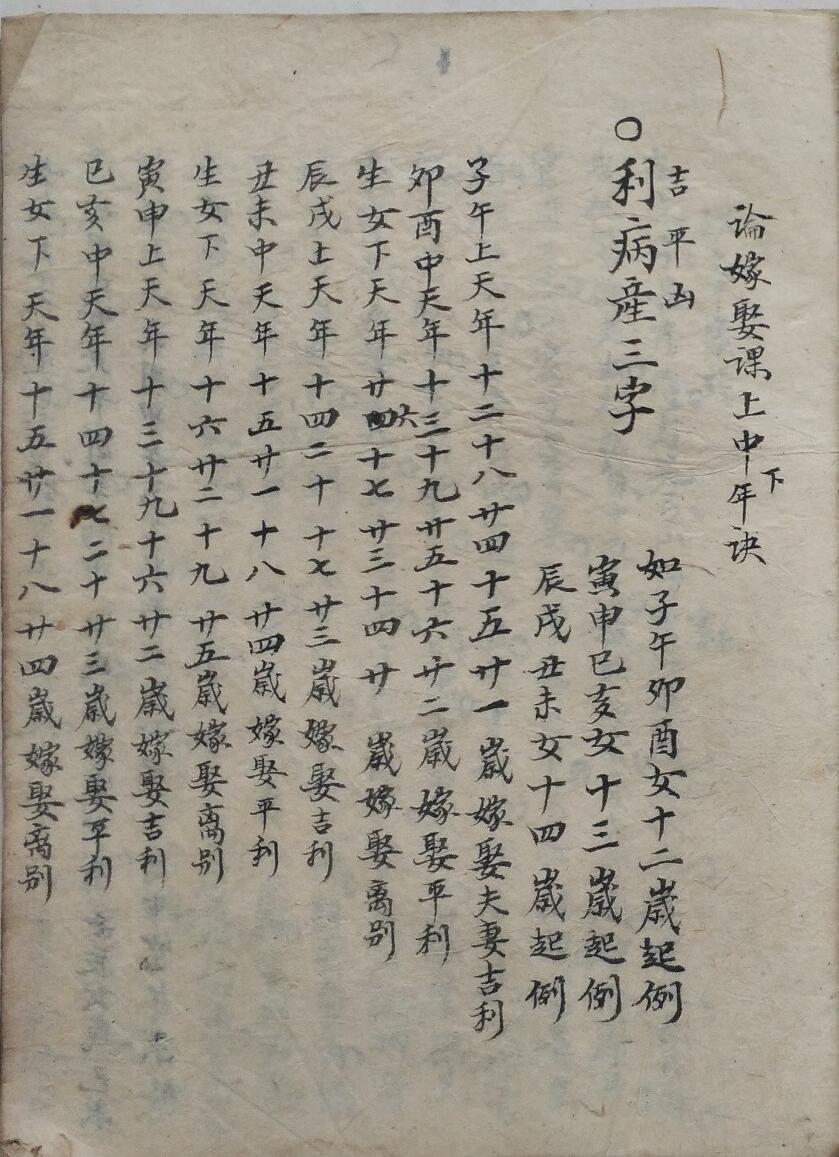 論嫁娶課上中下年訣
吉平凶
○利病產三字
如子午卯酉女十二歲起例
寅申巳亥女十三歲起例
辰戌丑未女十四歲起例
子午上天年十二十八廿四十五廿一歲嫁娶夫妻吉利
卯酉中天年十三十九廿五十六廿二歲嫁娶平利
生女下天年廿六十七廿三十四廿歲嫁娶离别
辰戌土天年十四二十十七廿三歲嫁娶吉利
丑未中天年十五廿一十八廿四歲嫁娶平利
生女下天年十六廿二十九廿五歲嫁娶离别
寅申上天年十三十九十六廿二歲嫁娶吉利
巳亥中天年十四十七二十廿三歲嫁娶平利
生女下天年十五廿一十八廿四歲嫁娶离别